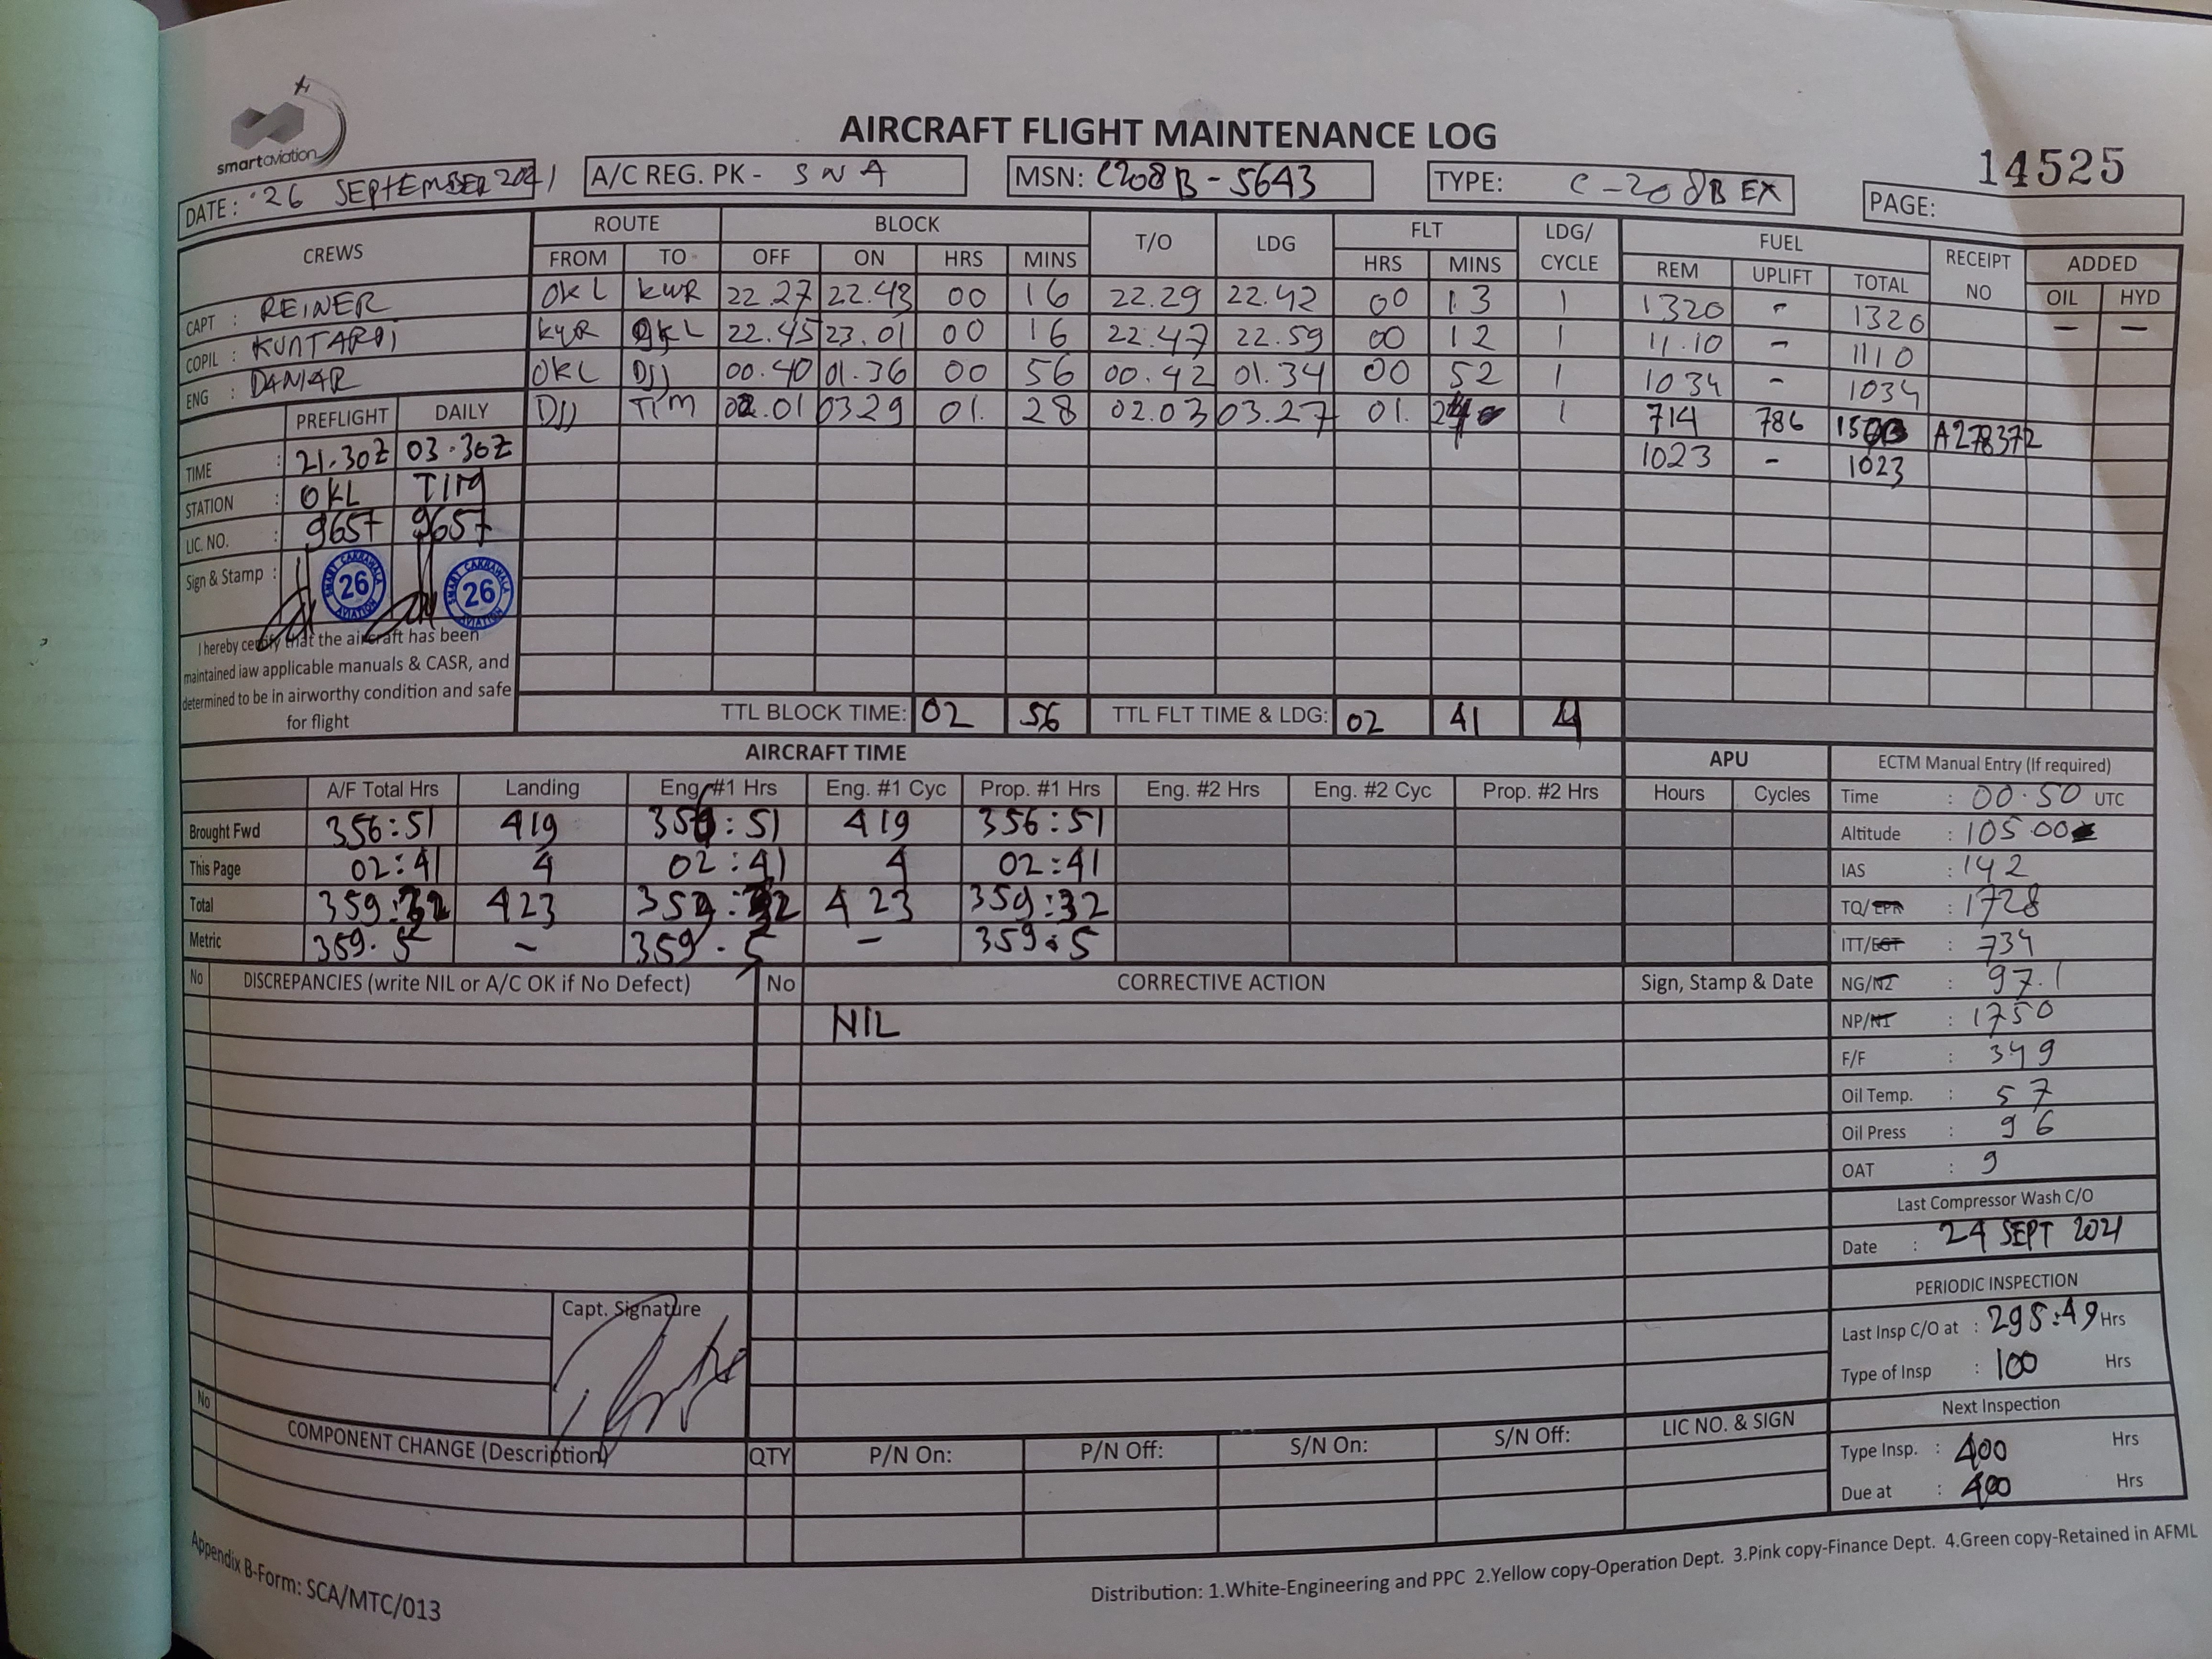 smartaviation
AIRCRAFT FLIGHT MAINTENANCE LOG
14525
DATE: 26 SEPTEMBER 2021 A/C REG. PK - SNA MSN: C208B-5643 TYPE: C-208B EX PAGE:
CREWS ROUTE BLOCK T/O LDG FLT LDG/ CYCLE FUEL RECEIPT NO ADDED
FROM TO OFF ON HRS MINS HRS MINS REM UPLIFT TOTAL OIL HYD
CAPT : REINER OKL KWR 22.27 22.43 00 16 22.29 22.42 00 13 1 1320 - 1320 - -
COPIL : KUNTARDI KWR OKL 22.45 23.01 00 16 22.47 22.59 00 12 1 11.10 - 1110
ENG : DANIAR OKL DJJ 00.40 01.36 00 56 00.42 01.34 00 52 1 1034 - 1034
PREFLIGHT DAILY DJJ TIM 02.01 0329 01. 28 02.03 03.27 01. 1 714 786 A278372
TIME : 21.30Z 03.30Z 1023 - 1023
STATION : OKL TIM
LIC. NO. : 9657 9657
Sign & Stamp :
SMART CAKRAWALA AVIATION 26
SMART CAKRAWALA AVIATION 26
I hereby certify that the aircraft has been
maintained iaw applicable manuals & CASR, and
determined to be in airworthy condition and safe
for flight
TTL BLOCK TIME: 02 56 TTL FLT TIME & LDG: 02 41 4
AIRCRAFT TIME APU
A/F Total Hrs Landing Eng. #1 Hrs Eng. #1 Cyc Prop. #1 Hrs Eng. #2 Hrs Eng. #2 Cyc Prop. #2 Hrs Hours Cycles
Brought Fwd 356:51 419 356:51 419 356:51
This Page 02:41 4 02:41 4 02:41
Total 359:32 423 359:32 423 359:32
Metric 359.5 - 359.5 - 359.5
ECTM Manual Entry (If required)
Time : 00.50 UTC
Altitude : 105.00
IAS : 142
TQ/EPR : 1728
ITT/EGT : 734
NG/N2 : 97.1
NP/N1 : 1750
F/F : 349
Oil Temp. : 57
Oil Press : 96
OAT : 9
Last Compressor Wash C/O
Date : 24 SEPT 2021
PERIODIC INSPECTION
Last Insp C/O at : 295:49 Hrs
Type of Insp : 100 Hrs
Next Inspection
Type Insp. : 400 Hrs
Due at : 400 Hrs
No DISCREPANCIES (write NIL or A/C OK if No Defect) No CORRECTIVE ACTION Sign, Stamp & Date
NIL
Capt. Signature
No COMPONENT CHANGE (Description) QTY P/N On: P/N Off: S/N On: S/N Off: LIC NO. & SIGN
Appendix B-Form: SCA/MTC/013
Distribution: 1.White-Engineering and PPC 2.Yellow copy-Operation Dept. 3.Pink copy-Finance Dept. 4.Green copy-Retained in AFML